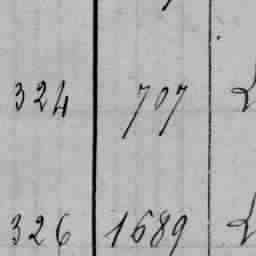 324 707
326 1689